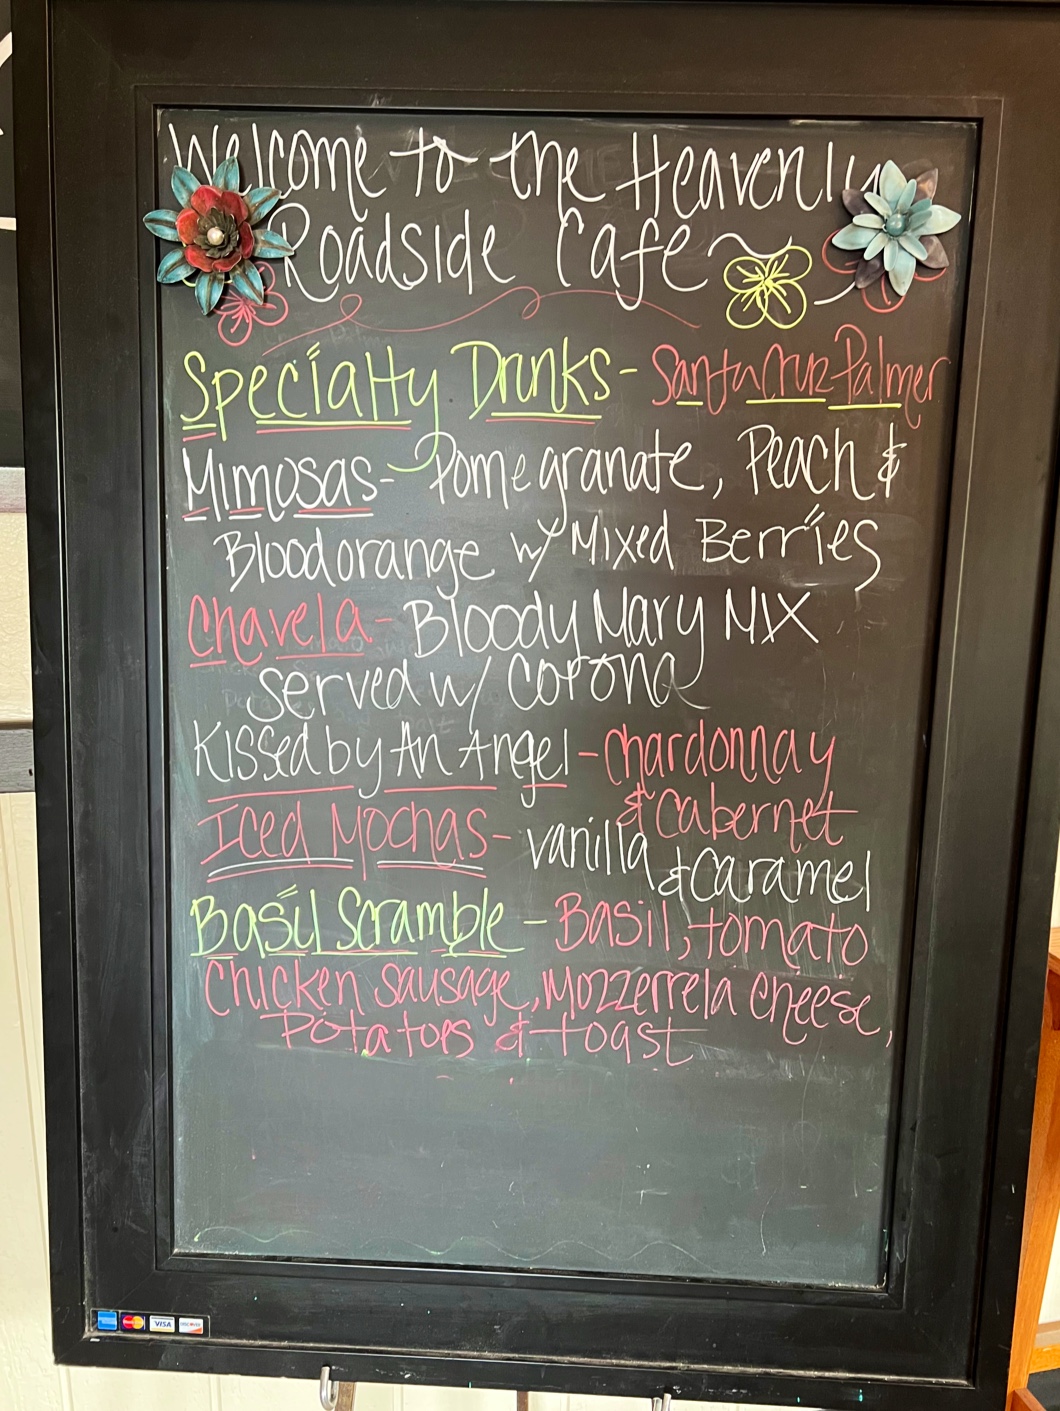 Welcome to the Heavenly
Roadside Cafe
Specialty Drinks - Santa Cruz Palmer
Mimosas - Pomegranate, Peach &
Bloodorange w/ Mixed Berries
Chavela - Bloody Mary Mix
served w/ Corona
Kissed by An Angel - Chardonnay
& Cabernet
Iced Mochas - vanilla & Caramel
Basil Scramble - Basil, tomato
Chicken sausage, Mozzerrela cheese,
Potatoes & toast
VISA DISCOVER